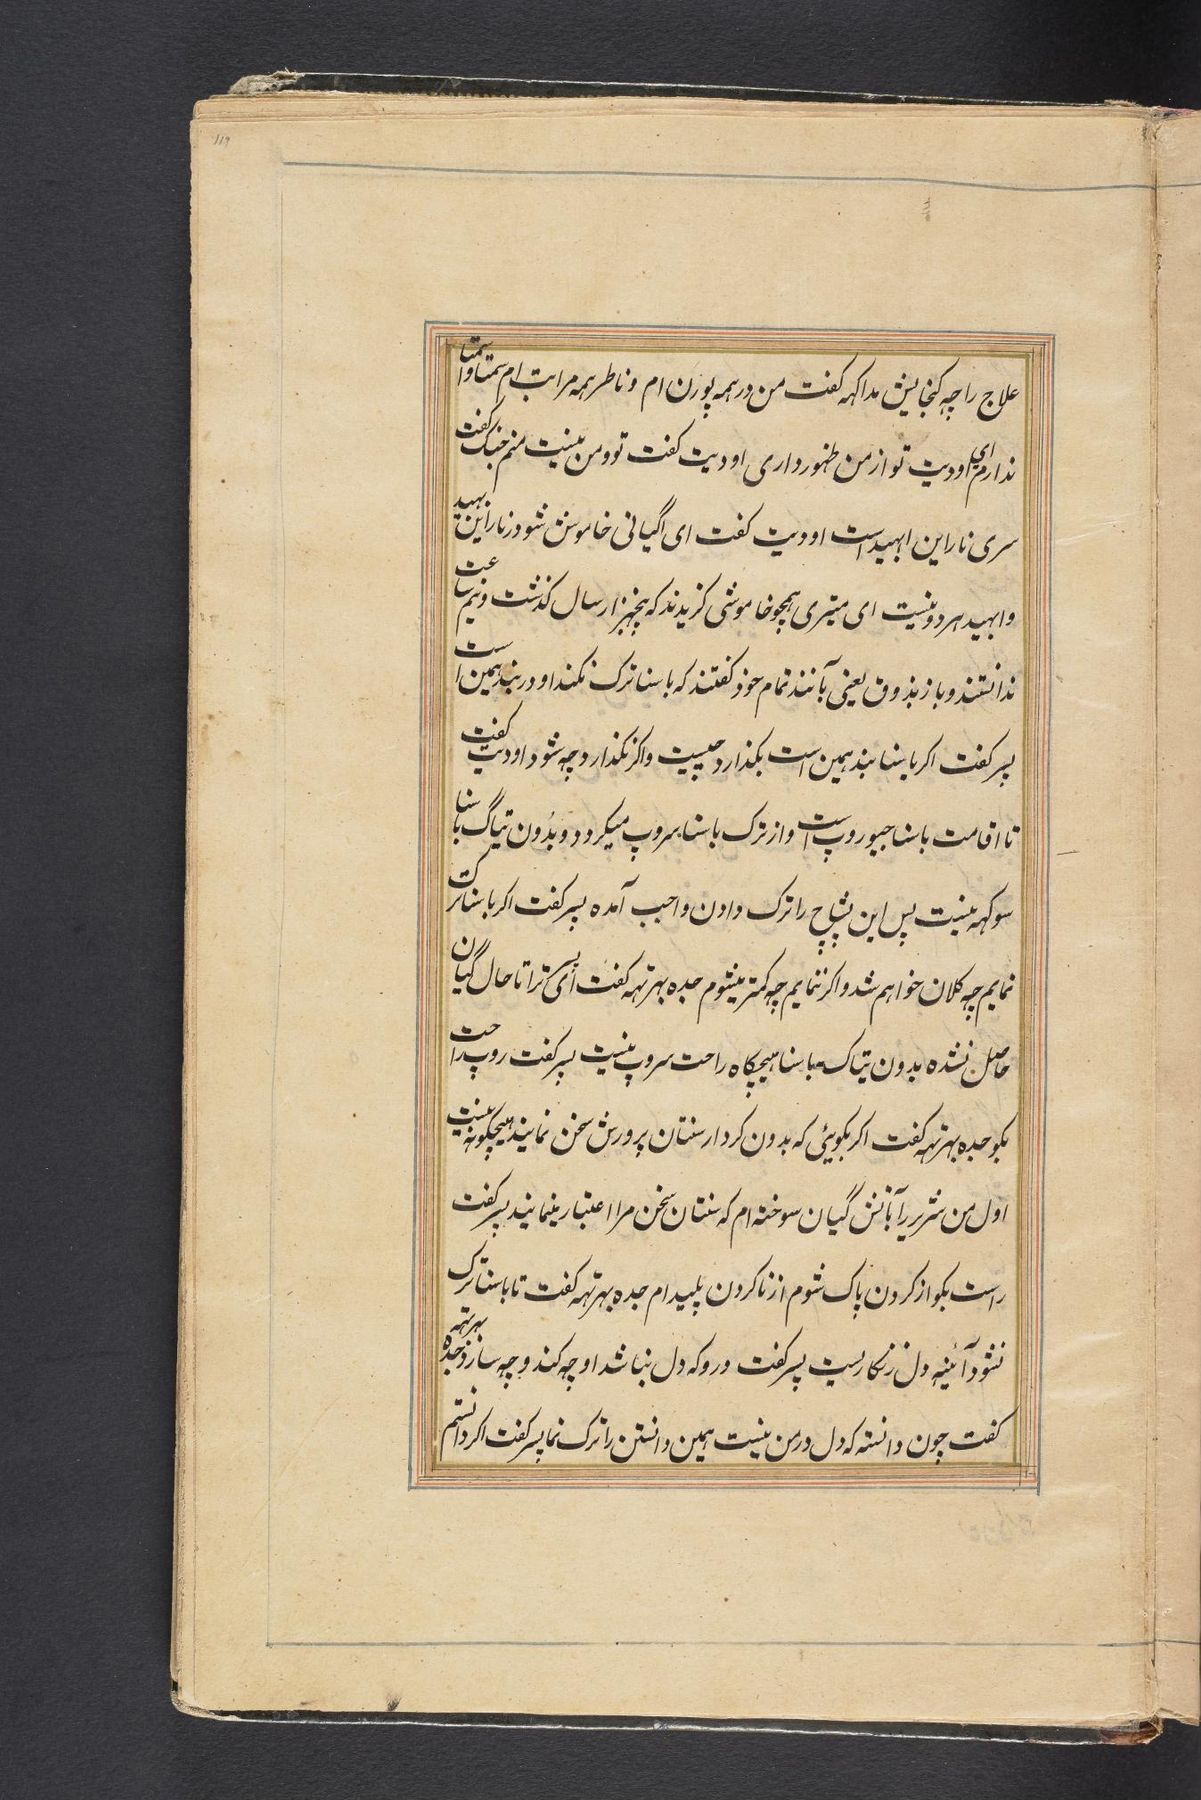 119
علاج را چه کنجایش مداکهه کفت من در همه پورن ام و ناظر همه مراتب ام سمتا و اسمتا
ندارم ای اودیت تو از من ظهور داری اودیت کفت تو و من نیست منم جنک کفت
سری ناراین ابهید است اودیت کفت ای اگیانی خاموش شو در ناراین بهید
و ابهید هر دو نیست ای میتری همچو خاموشی کزیدند که پنجهزار سال کذشت و نیم ساعت
ندانستند و باز بذوق یعنی بآنند تمام خود کفتند که باسنا ترک نکند او در بند همین است
پسر کفت اکر باسنا بند همین است بکذارد چیست و اکر نکذارد چه شود اودیت کفت
تا اقامت باسنا جیو روپ است و از ترک باسنا سروپ میکرود و بدون تیاگ باسنا
سوکهه نیست پس این پشاچ را ترک دادن واجب آمده پسر کفت اکر باسنا ترک
نمایم چه کلان خواهم شد و اکر ننمایم چه کمتر میشوم جده بهرتهه کفت ای پسر ترا تا حال گیان
حاصل نشده بدون تیاک باسنا هیچکاه راحت سروپ نیست پسر کفت روپ راحت
بکو جده بهرتهه کفت اکر بکویئی که بدون کردار سنتان پرورش سخن نمایند هیچکونه نیست
اول من شریر را بآتش گیان سوخته ام که سنتان سخن مرا اعتبار مینمایند پسر کفت
راست بکو از کردن پاک شوم از ناکردن پلید ام جده بهرتهه کفت تا باسنا ترک
نشود آئینه دل زنکاریست پسر کفت در و که دل نباشد او چه کند و چه سازد جده بهرتهه
کفت چون دانسته که دل در من نیست همین دانستن را ترک نما پسر کفت اکر دانستم